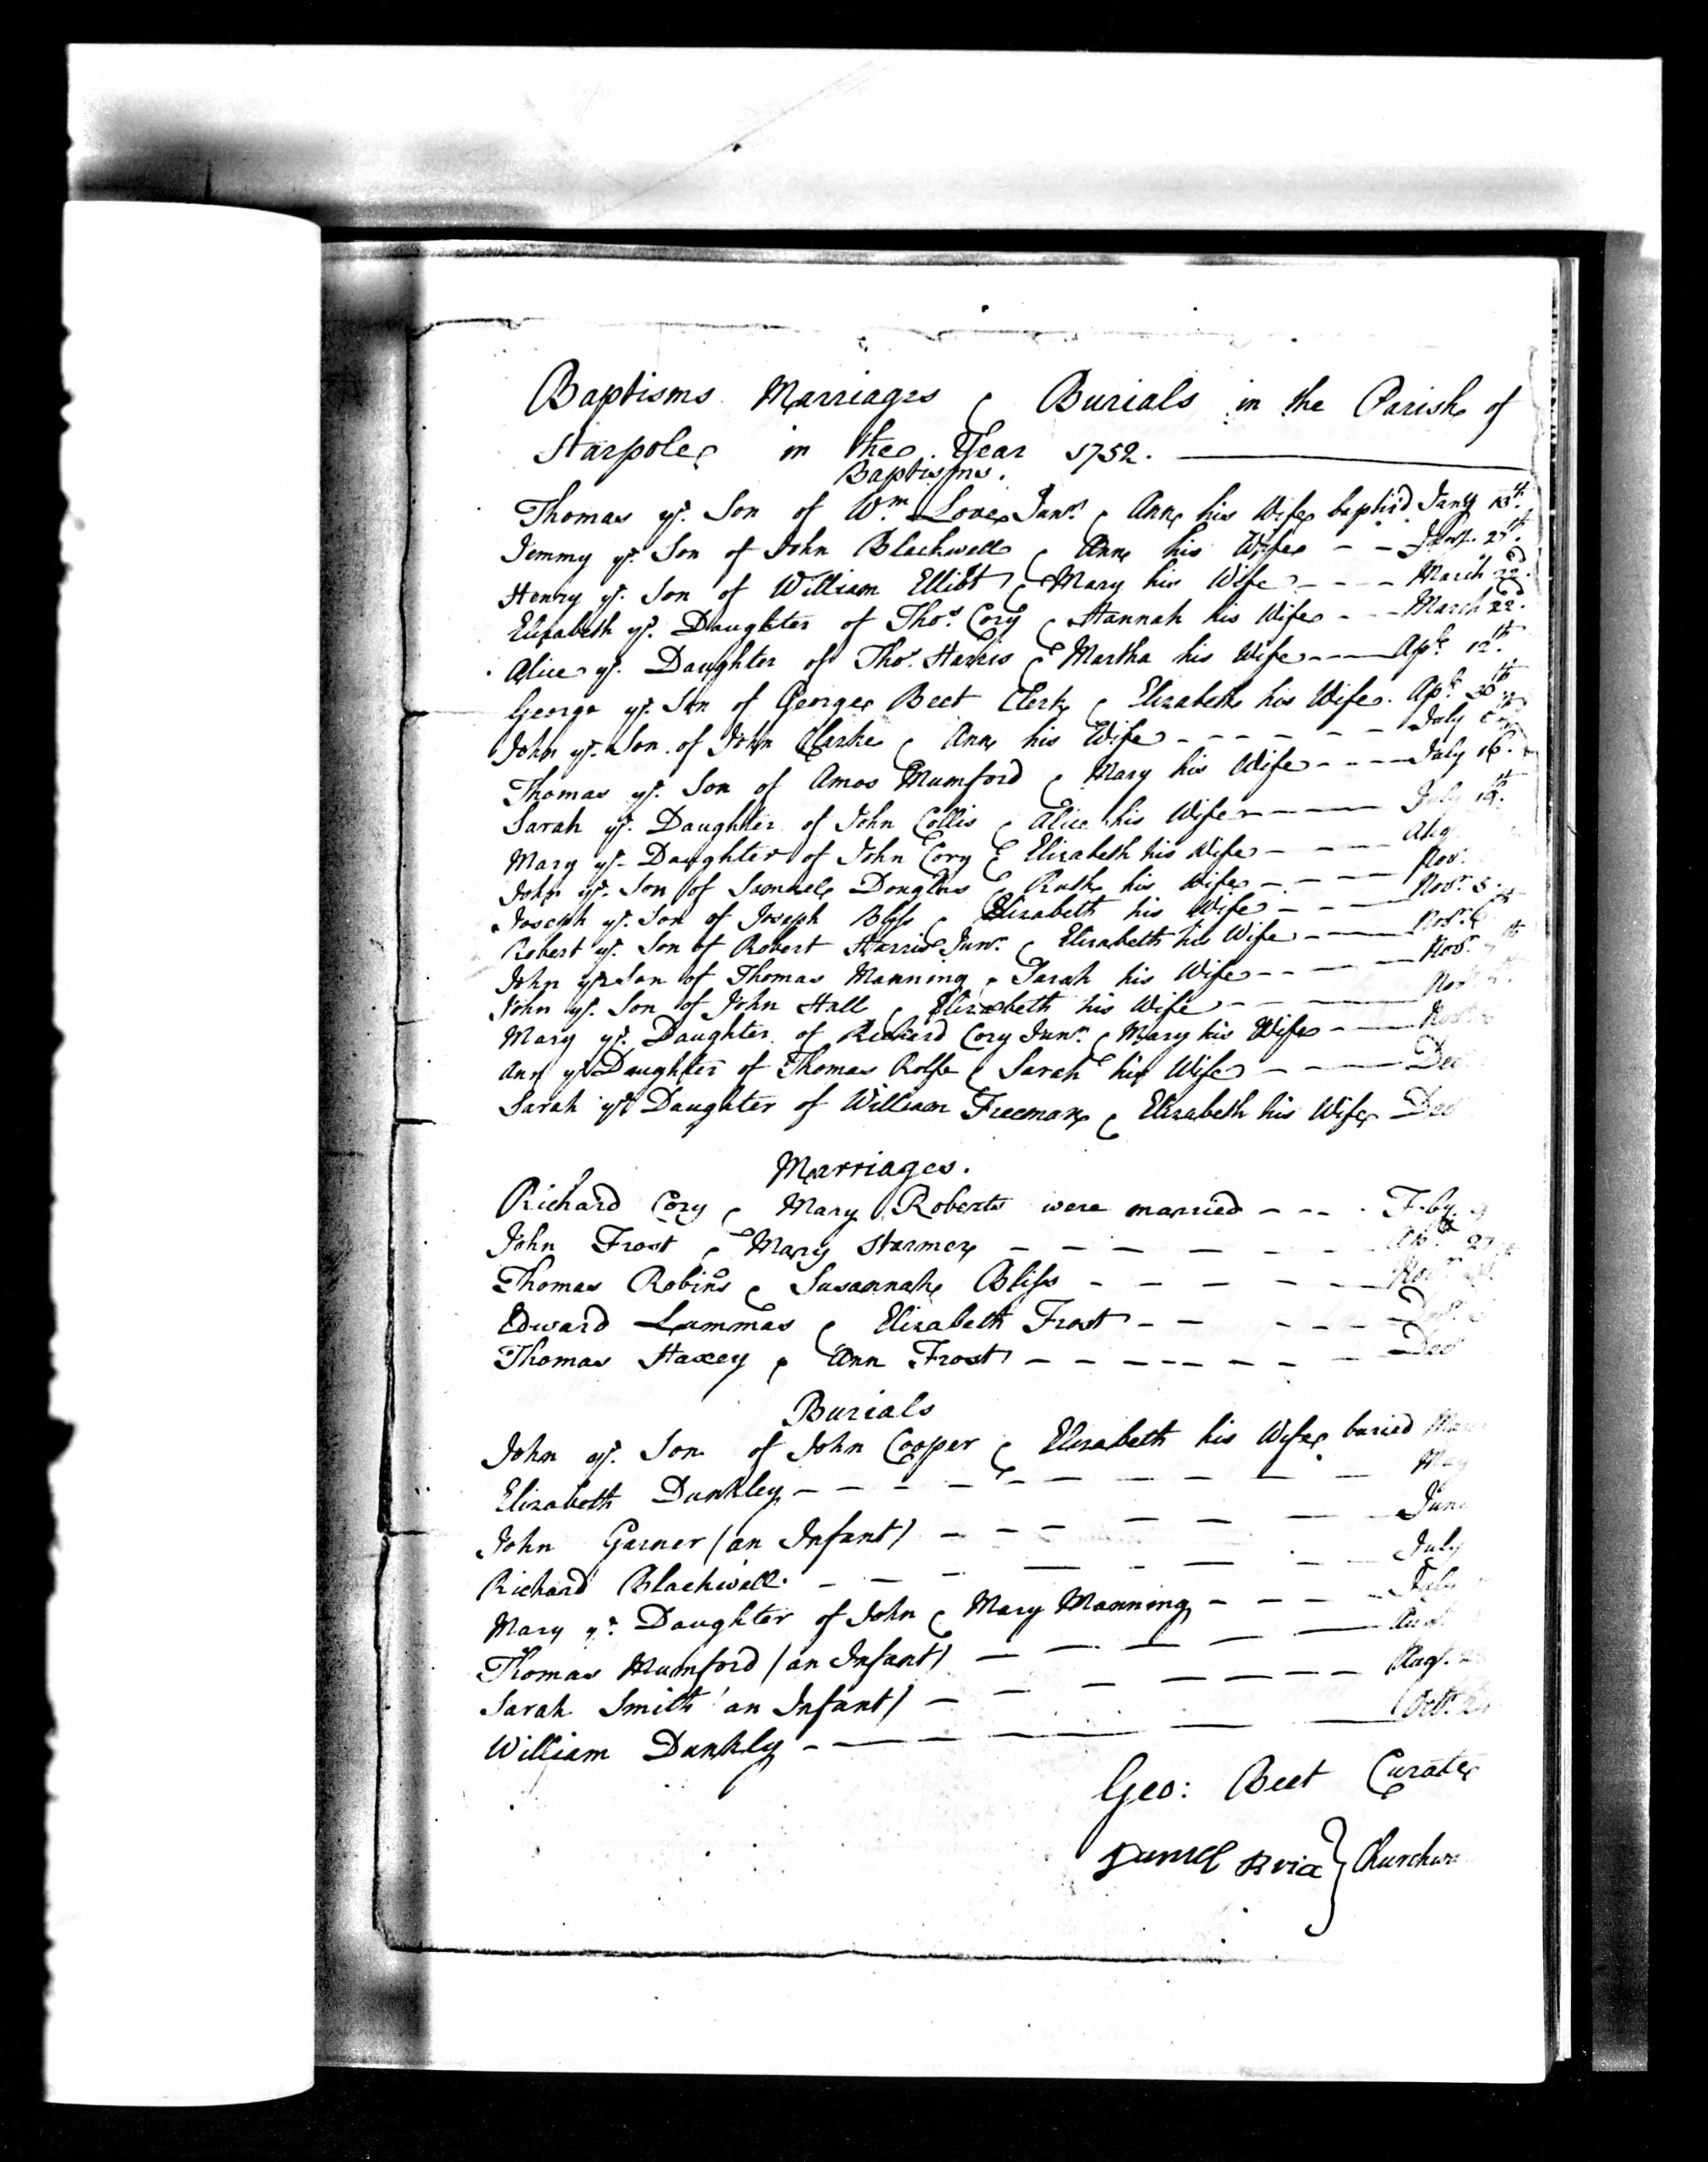 Baptisms Marriages & Burials in the Parish of
Harpole in the Year 1752.
Baptisms.
Thomas ye. Son of Wm. Love Junr. & Ann his Wife baptis'd Jany 13th.
Jemmy ye. Son of John Blackwell & Ann his Wife
Henry ye. Son of William Elliot & Mary his Wife - - - March 22d.
Elizabeth ye. Daughter of Thos. Cory & Hannah his Wife - - - March 22d.
Alice ye. Daughter of Thos. Harris & Martha his Wife - - - Apr. 12th.
George ye. Son of George Beet Clerk & Elizabeth his Wife. Apr. 30th
John ye. Son of John Clarke & Ann his Wife - - - - - - July
Thomas ye. Son of Amos Mumford & Mary his Wife - - - July 16.
Sarah ye. Daughter of John Collis & Alice his Wife - - - July 19th.
Mary ye. Daughter of John Cory & Elizabeth his Wife - - - Aug
John ye. Son of Samuel Douglas & Ruth his Wife - - - Novr.
Joseph ye. Son of Joseph Bliss & Elizabeth his Wife - - - Novr. 5.
Robert ye. Son of Robert Harris Junr. & Elizabeth his Wife - - - Novr.
John ye Son of Thomas Manning & Sarah his Wife - - - Novr.
John ye. Son of John Hall & Elizabeth his Wife - - - Novr
Mary ye. Daughter of Richard Cory Junr. & Mary his Wife - - - Novr
Ann ye Daughter of Thomas Rolfe & Sarah his Wife - - - Dec
Sarah ye Daughter of William Freeman & Elizabeth his Wife Dec
Marriages.
Richard Cory & Mary Roberts were married - - - Feby.
John Frost & Mary Starmer - - - - - - - Apr. 27
Thomas Robins & Susannah Bliss - - - - - Novr
Edward Lammas & Elizabeth Frost - - - - - -
Thomas Haxey & Ann Frost - - - - - - - - Dec
Burials
John ye. Son of John Cooper & Elizabeth his Wife buried Mar
Elizabeth Dunkley - - - - - - - - - - May
John Garner (an Infant) - - - - - - - June
Richard Blackwell - - - - - - - - - July
Mary ye. Daughter of John & Mary Manning - - - - July
Thomas Mumford (an Infant) - - - - - -
Sarah Smith (an Infant) - - - - - - - Augt. 2
William Dunkly - - - - - - - Octr. 2
Geo: Beet Curate
Churchwa